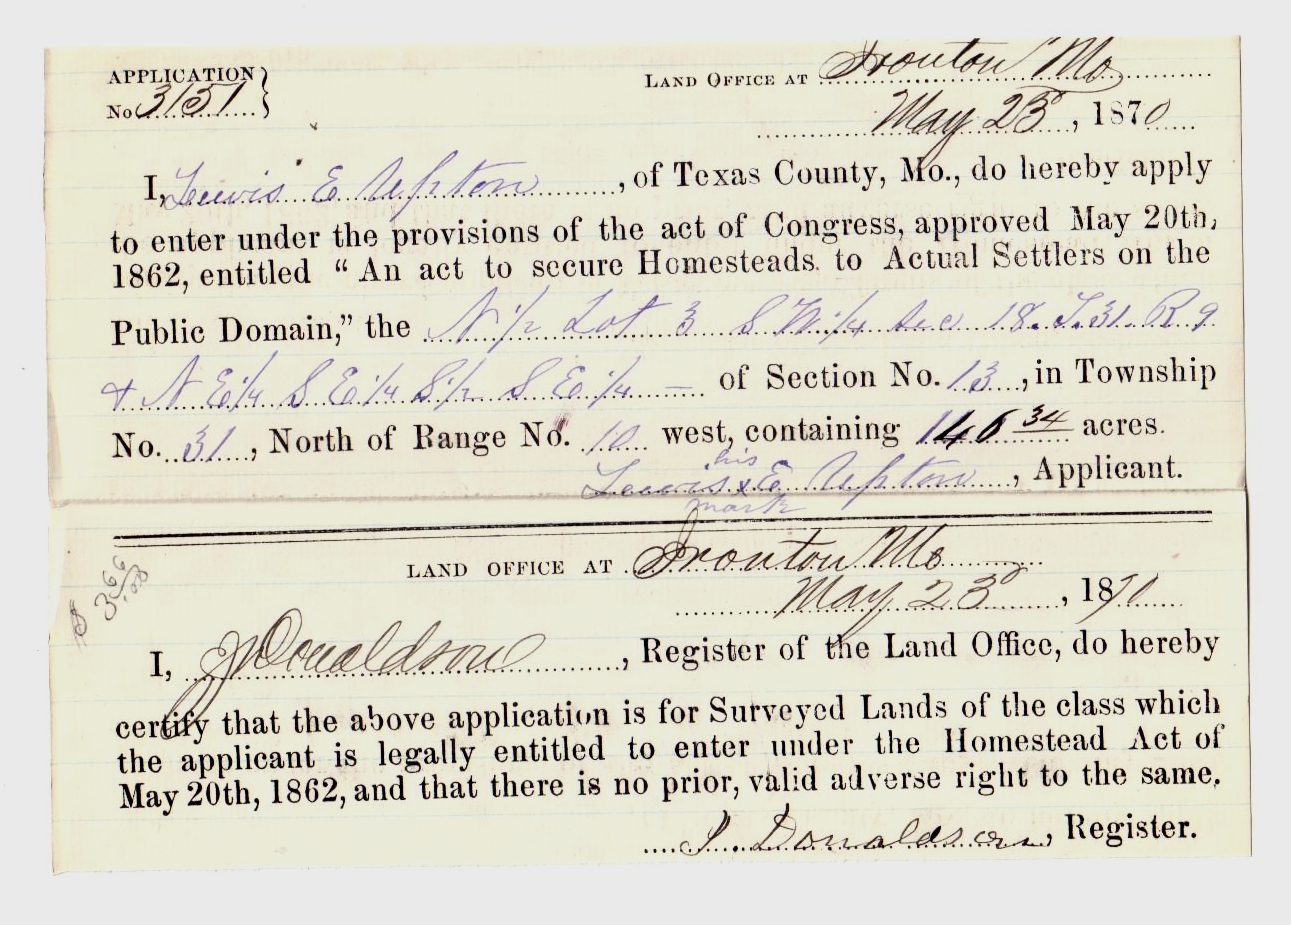 APPLICATION
No 3151
LAND OFFICE AT Ironton Mo
May 23d, 1870
I, Lewis E Upton, of Texas County, Mo., do hereby apply
to enter under the provisions of the act of Congress, approved May 20th,
1862, entitled “An act to secure Homesteads to Actual Settlers on the
Public Domain,” the N 1/2 Lot 3 S W 1/4 Sec 18. T. 31. R 9
& N E 1/4 S E 1/4 S 1/2 S E 1/4 — of Section No. 13, in Township
No. 31, North of Range No. 10 west, containing 146 34 acres.
his
Lewis x E Upton, Applicant.
mark
LAND OFFICE AT Ironton Mo
May 23d, 1870
I, J Donaldson, Register of the Land Office, do hereby
certify that the above application is for Surveyed Lands of the class which
the applicant is legally entitled to enter under the Homestead Act of
May 20th, 1862, and that there is no prior, valid adverse right to the same.
J. Donaldson, Register.